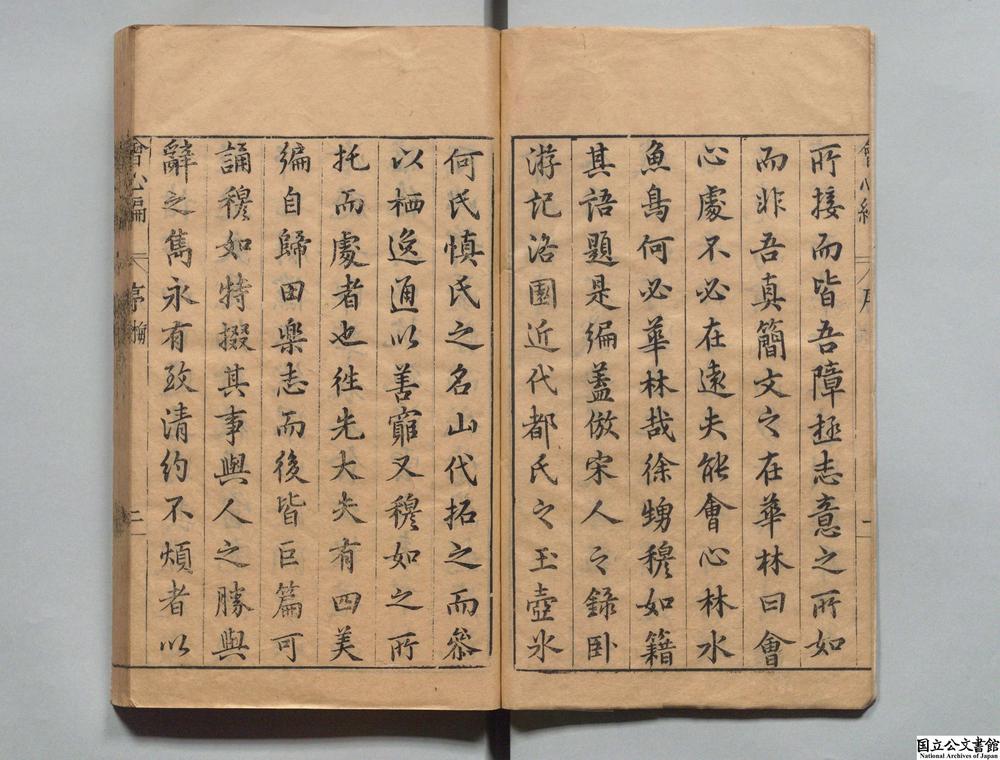 所接而皆吾障極志意之所如
而非吾真簡文之在華林曰會
心處不必在遠夫能會心林水
魚鳥何必華林哉徐甥穆如籍
其語題是編蓋倣宋人之錄卧
游記洛園近代都氏之玉壺氷
何氏慎氏之名山代拓之而叅
以栖逸通以善寤又穆如之所
托而處者也徃先大夫有四美
編自歸田樂志而後皆巨篇可
誦穆如特掇其事與人之勝與
辭之雋永有致清約不煩者以
會心編
序
二
国立公文書館
National Archives of Japan